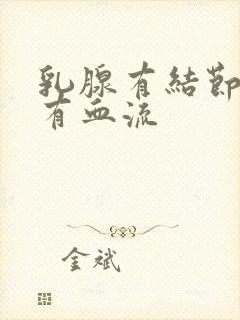 乳腺有結節
有血流
金斌